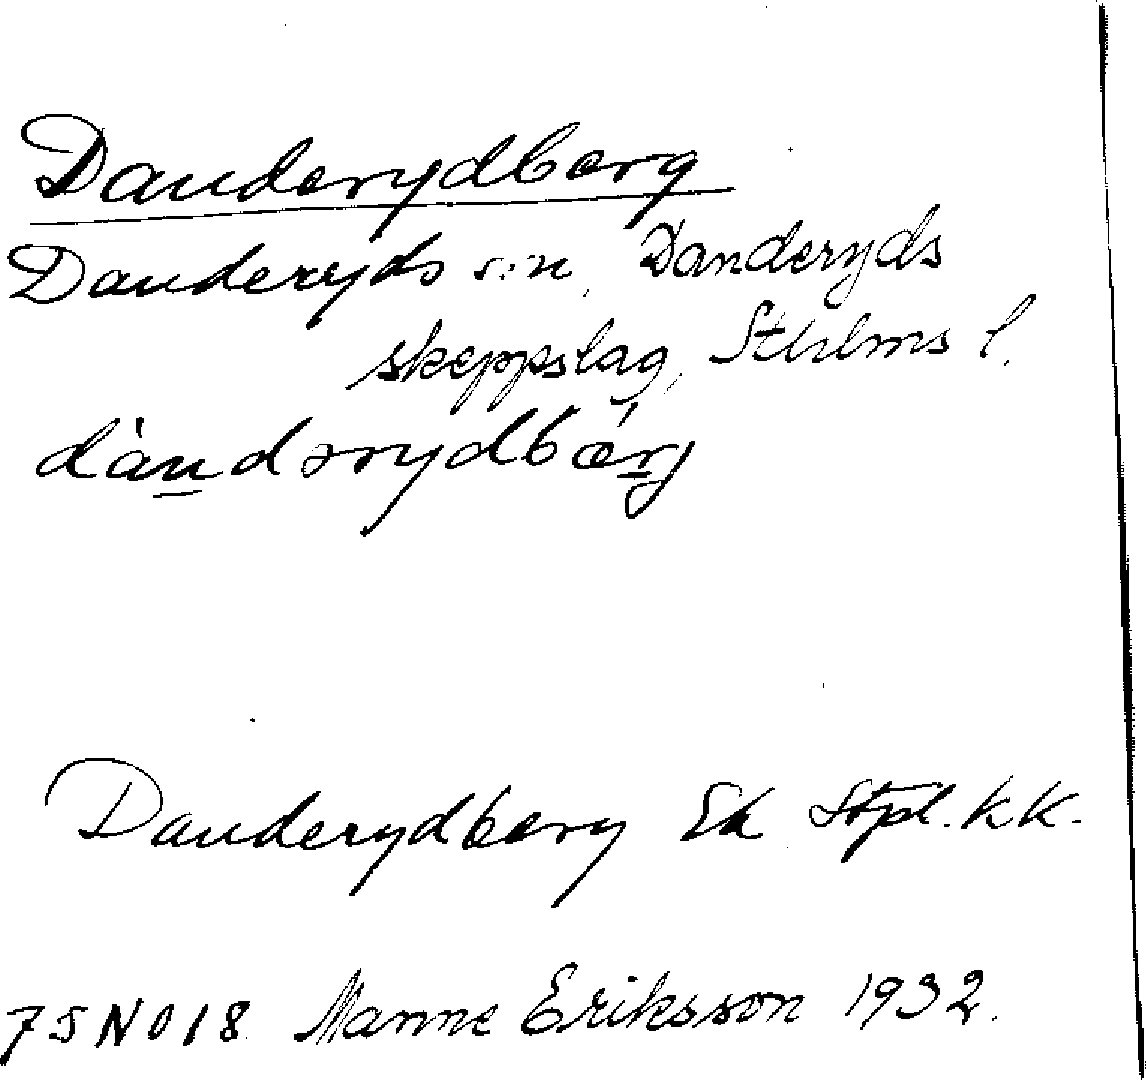 Danderydberg
Danderyds s:n, Danderyds
skeppslag, Sthlms l.
dànderydbærj
Danderydberg Ek Stpl. kk.
75NO18. Manne Eriksson 1932.